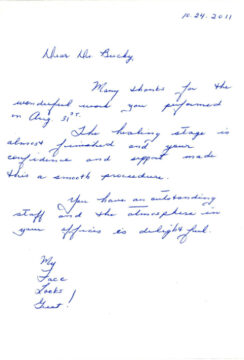 10.24.2011
Dear Dr. Bucky,
Many thanks for the
wonderful work you performed
on Aug. 31st.
The healing stage is
almost finished and your
confidence and support made
this a smooth procedure.
You have an outstanding
staff and the atmosphere in
your offices is delightful.
My
Face
Looks
Great!